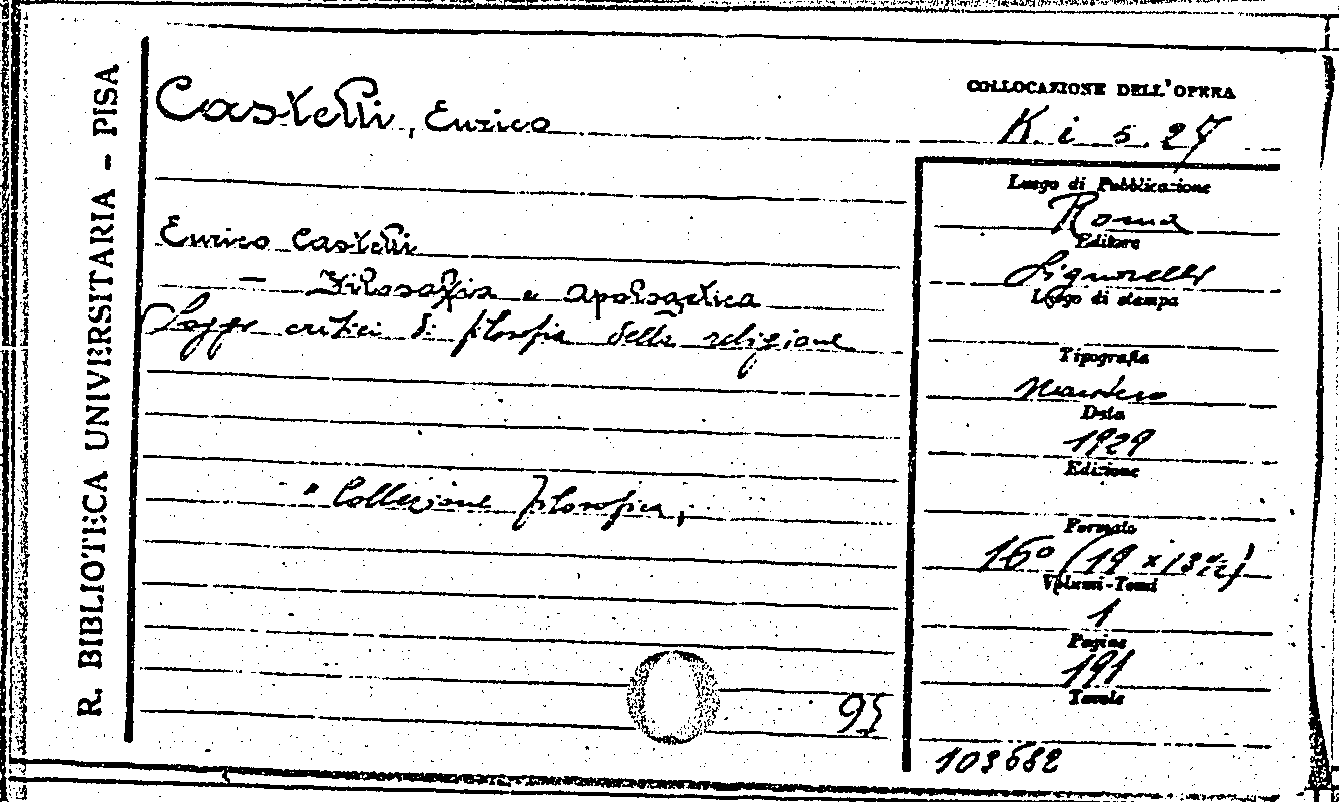 R. BIBLIOTECA UNIVERSITARIA - PISA
Castelli, Enrico
Enrico Castelli
- Filosofia e apologetica
Saggi critici di filosofia della religione
"Collezione filosofica,,
95
COLLOCAZIONE DELL'OPERA
K. i 5.27
Luogo di Pubblicazione
Roma
Editore
Signorelli
Luogo di stampa
Tipografia
Data
1929
Edizione
Formato
16° (19 x 13
Volumi-Tomi
1
Pagine
191
Tavole
103682